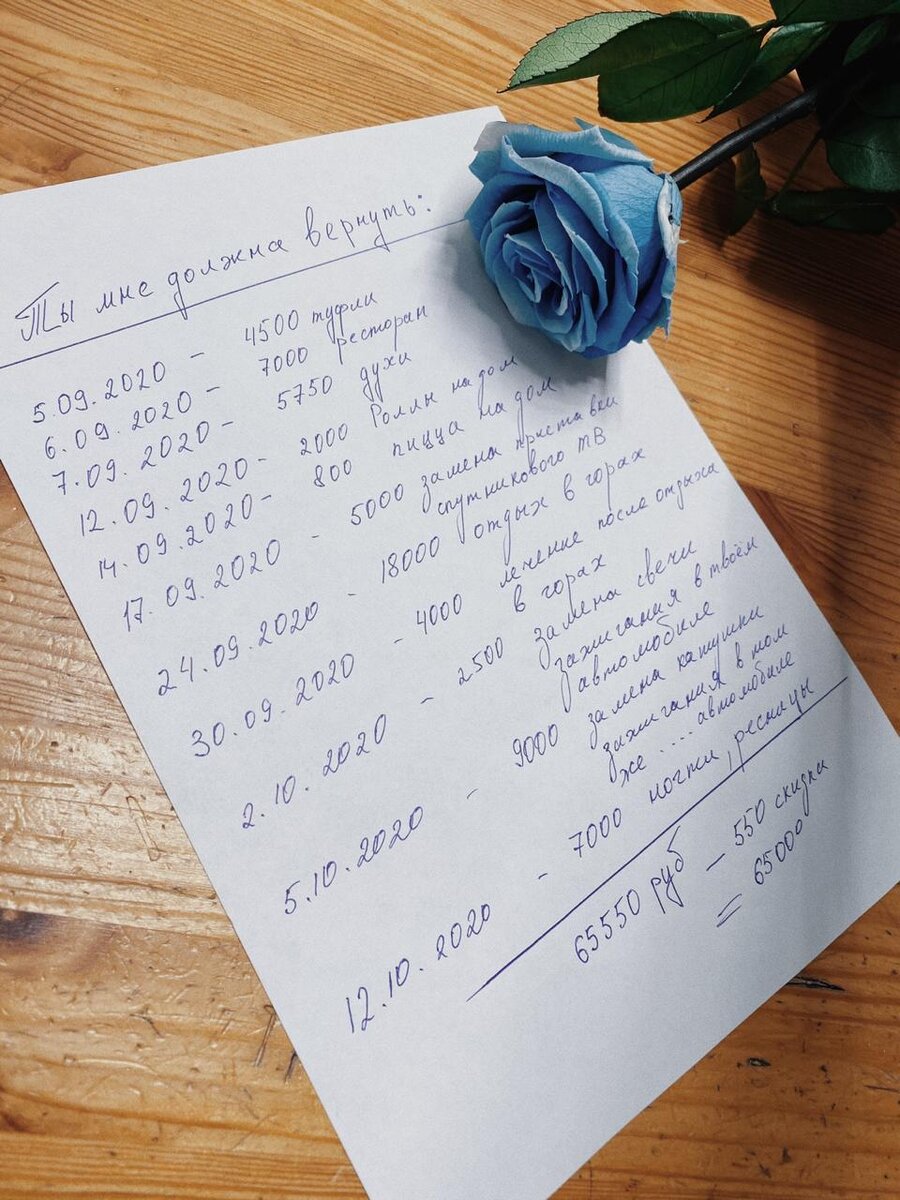 Ты мне должна вернуть:
5.09.2020 - 4500 туфли
6.09.2020 - 7000 ресторан
7.09.2020 - 5750 духи
12.09.2020 - 2000 Роллы на дом
14.09.2020 - 800 пицца на дом
17.09.2020 - 5000 замена приставки
спутникового ТВ
24.09.2020 - 18000 отдых в горах
30.09.2020 - 4000 лечение после отдыха
в горах
2.10.2020 - 2500 замена свечи
зажигания в твоём
автомобиле
5.10.2020 - 9000 замена катушки
зажигания в том
же .... автомобиле
12.10.2020 - 7000 ногти, ресницы
65550 руб - 550 скидки
= 65000